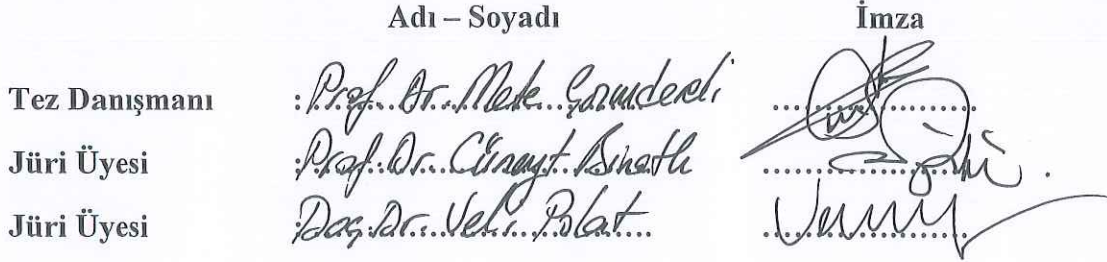 Adı – Soyadı İmza
Tez Danışmanı : Prof. Dr. Mete Çamdereli
Jüri Üyesi : Prof. Dr. Cüneyt Binatlı
Jüri Üyesi : Doç. Dr. Veli Polat